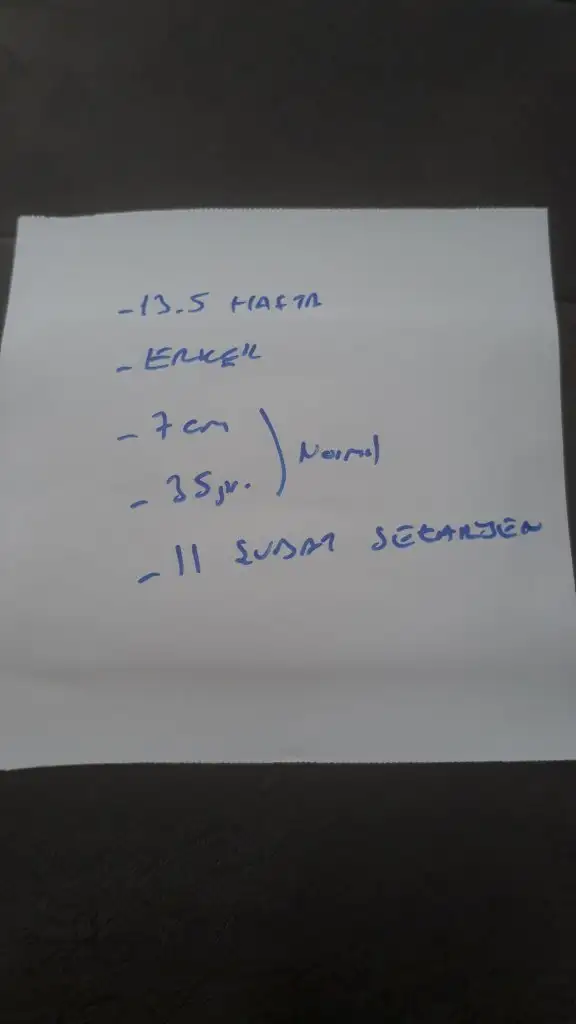 -13.5 HAFTA
- ERKEK
- 7 cm
Normal
- 35 gr.
- 11 ŞUBAT SEZARYEN